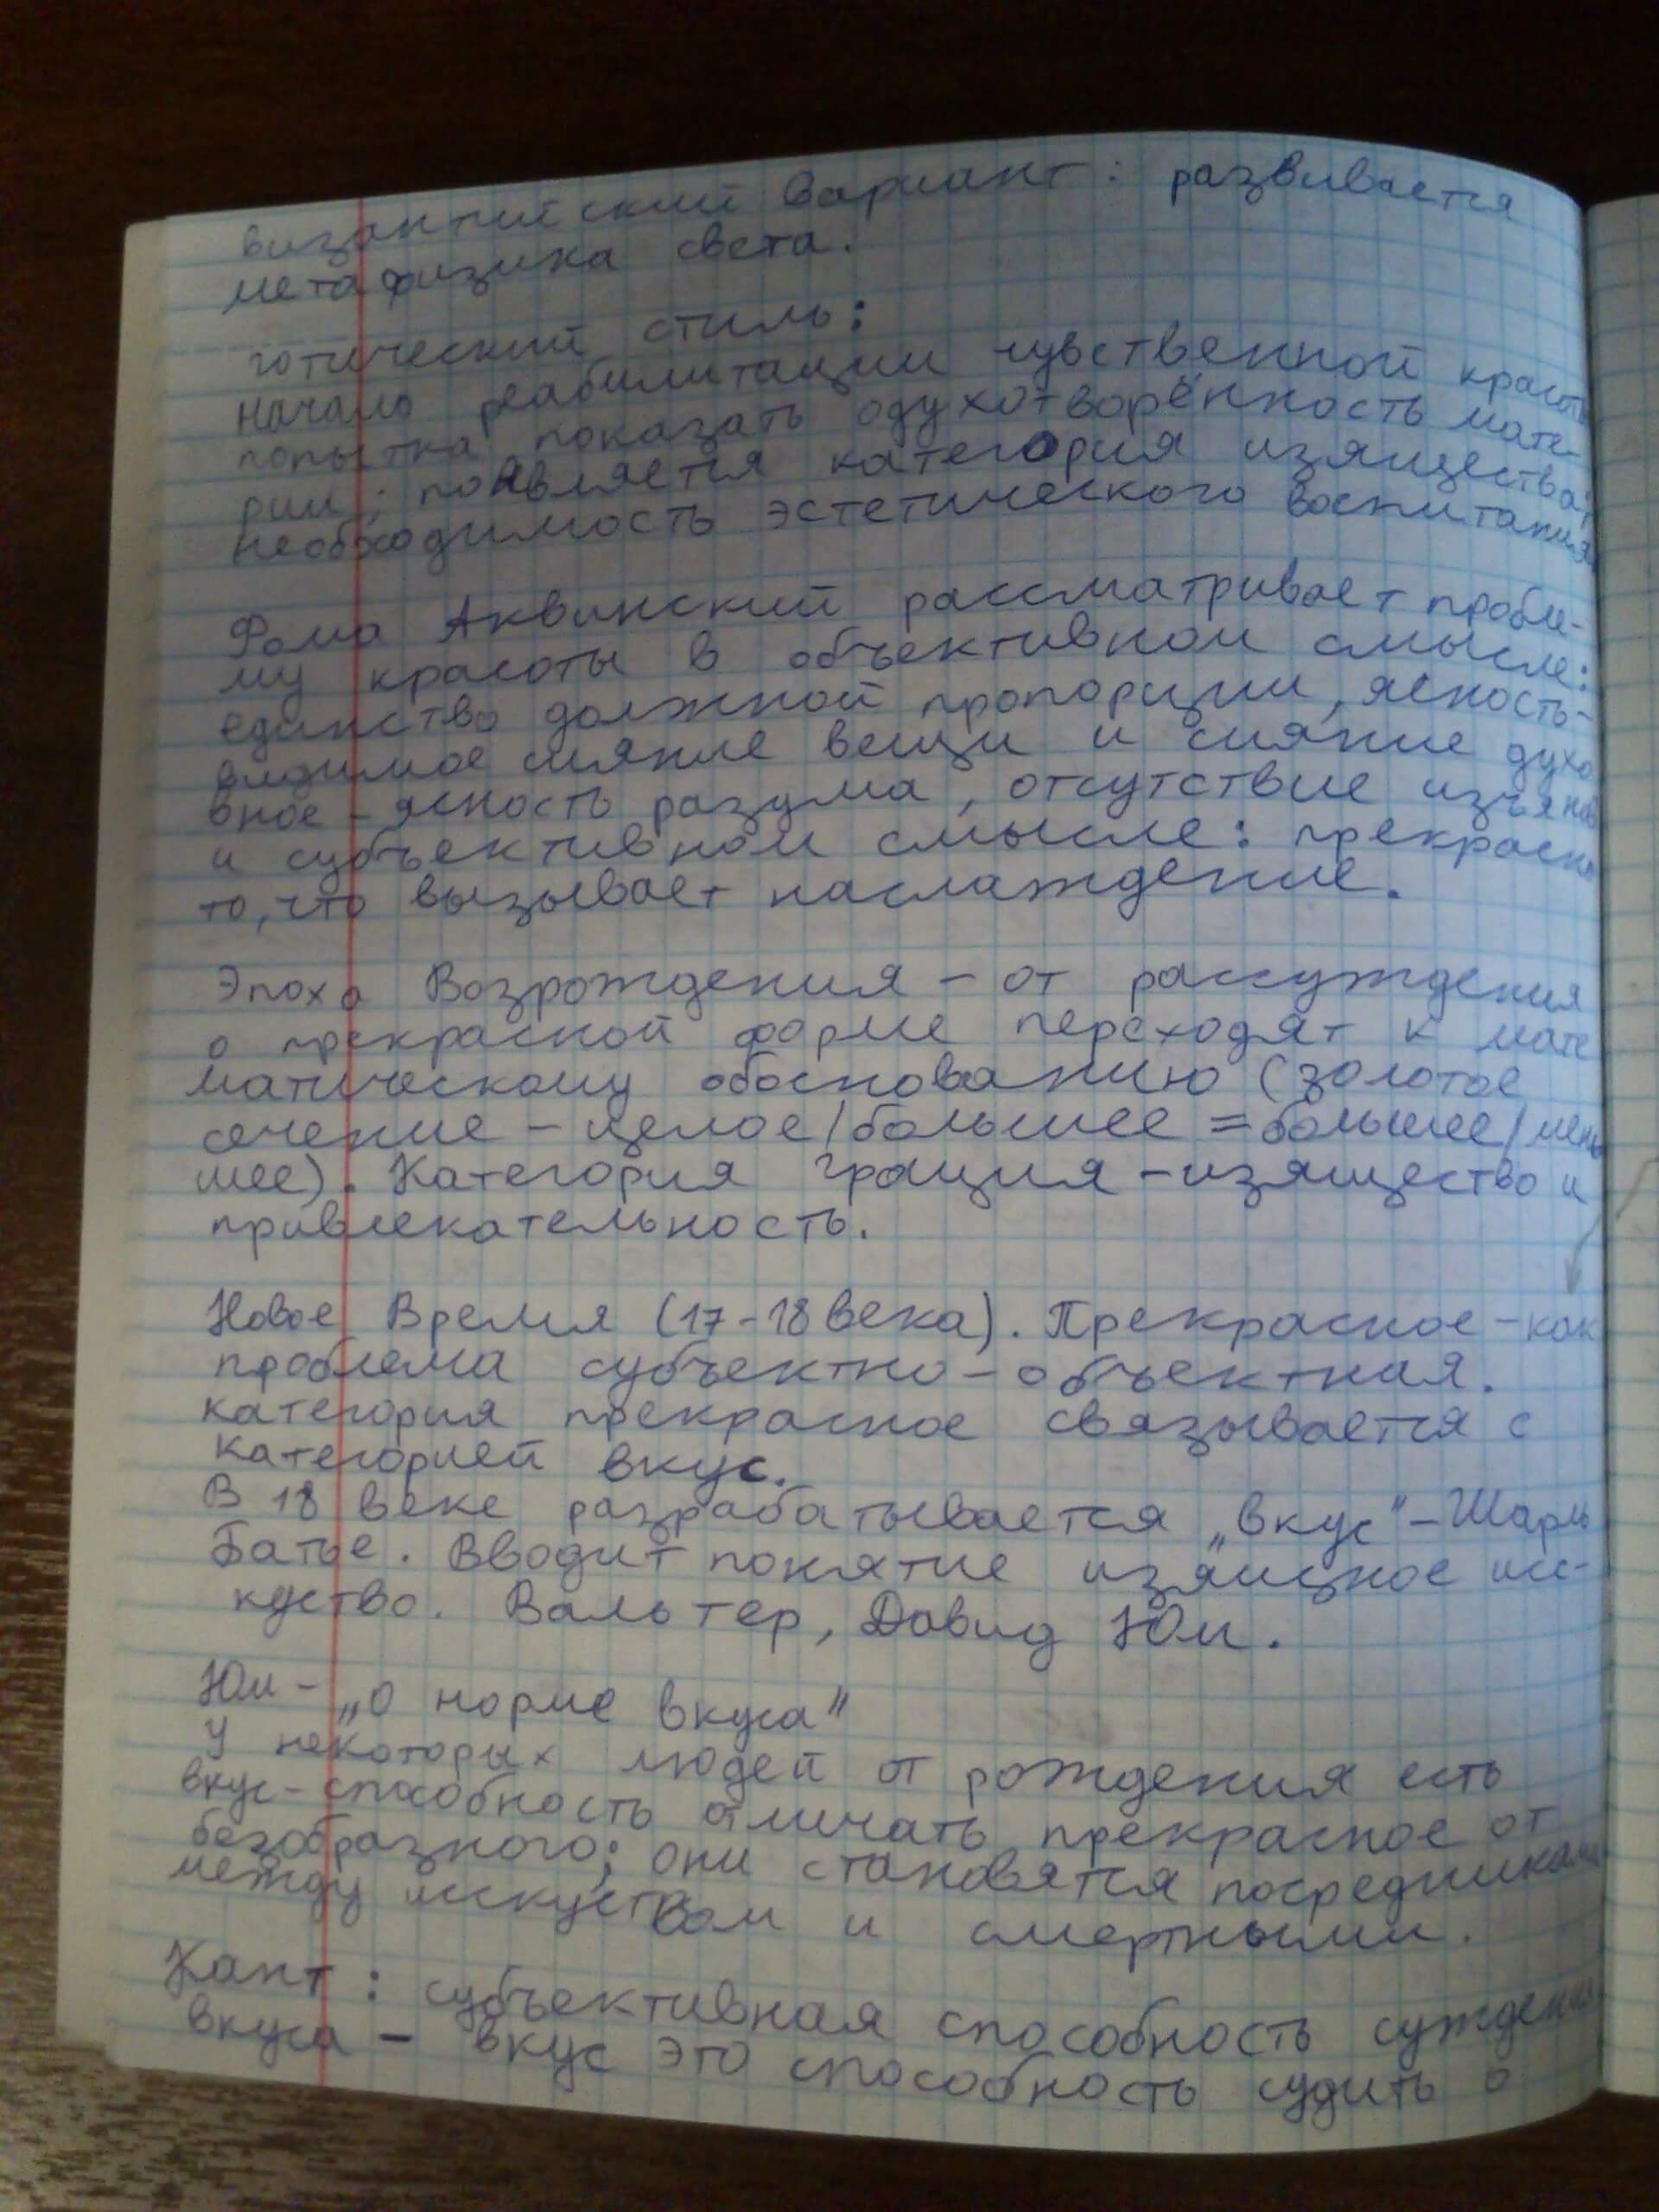 византийский вариант: развивается
метафизика света.
готический стиль:
начало реабилитации чувственной красоты
попытка показать одухотворённость мате-
рии; появляется категория изящества;
необходимость эстетического воспитания
Фома Аквинский рассматривает пробле-
му красоты в объективном смысле:
единство должной пропорции, ясность-
видимое сияние вещи и сияние духо
вное - ясность разума, отсутствие изъянов
и субъективном смысле: прекрасно
то, что вызывает наслаждение.
Эпоха Возрождения - от рассуждения
о прекрасной форме переходят к мате
матическому обоснованию (золотое
сечение - целое/большее = большее/мень
шее). Категория грация - изящество и
привлекательность.
Новое Время (17-18 века). Прекрасное - как
проблема субъектно-объектная.
категория прекрасное связывается с
категорией вкус.
В 18 веке разрабатывается „вкус" - Шарль
Батьё. Вводит понятие изящное исс-
куство. Вальтер, Давид Юм.
Юм - „О норме вкуса"
У некоторых людей от рождения есть
вкус - способность отличать прекрасное от
безобразного; они становятся посредниками
между исскуством и смертными.
Кант: субъективная способность суждения
вкуса - вкус это способность судить о